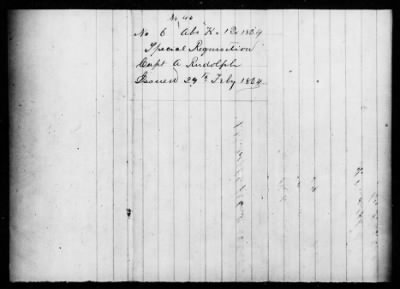 No 40
No 6 Abs K. 1 Qr 1824
Special Requisition
Capt A Rudolph
Issued 29th Feby 1824